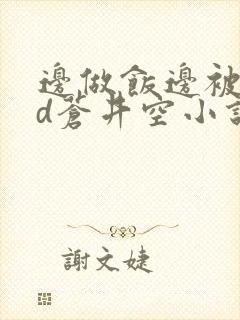 邊做飯邊被
d蒼井空小
謝文婕